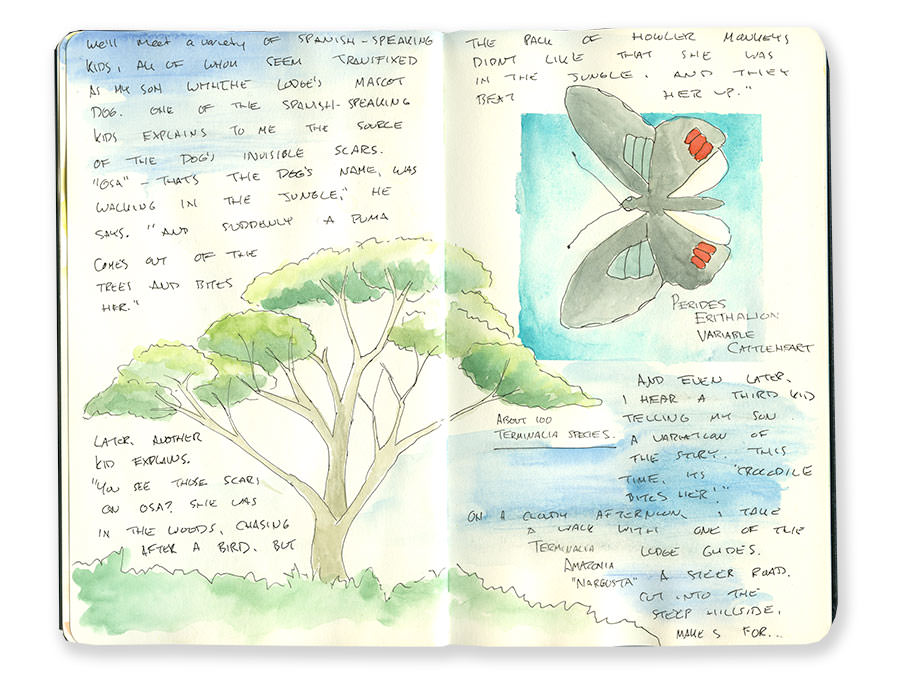 We'll meet a variety of Spanish-speaking
kids, all of whom seem transfixed
as my son with the lodge's mascot
dog. One of the Spanish-speaking
kids explains to me the source
of the dog's invisible scars.
"Osa" – that's the dog's name, was
walking in the jungle," he
says. "And suddenly a puma
comes out of the
trees and bites
her."
Later, another
kid explains.
"You see those scars
on Osa? She was
in the woods, chasing
after a bird. But
the pack of howler monkeys
didnt like that she was
in the jungle. And they
beat her up."
Perides
Erithalion
Variable
Cattleheart
And even later,
I hear a third kid
telling my son
a variation of
the story. This
time, its "crocodile
bites her!"
About 100
Terminalia species.
On a cloudy afternoon I take
a walk with one of the
lodge guides.
Terminalia
Amazonia
"Nargusta"
A steep road.
Cut into the
steep hillside,
makes for...